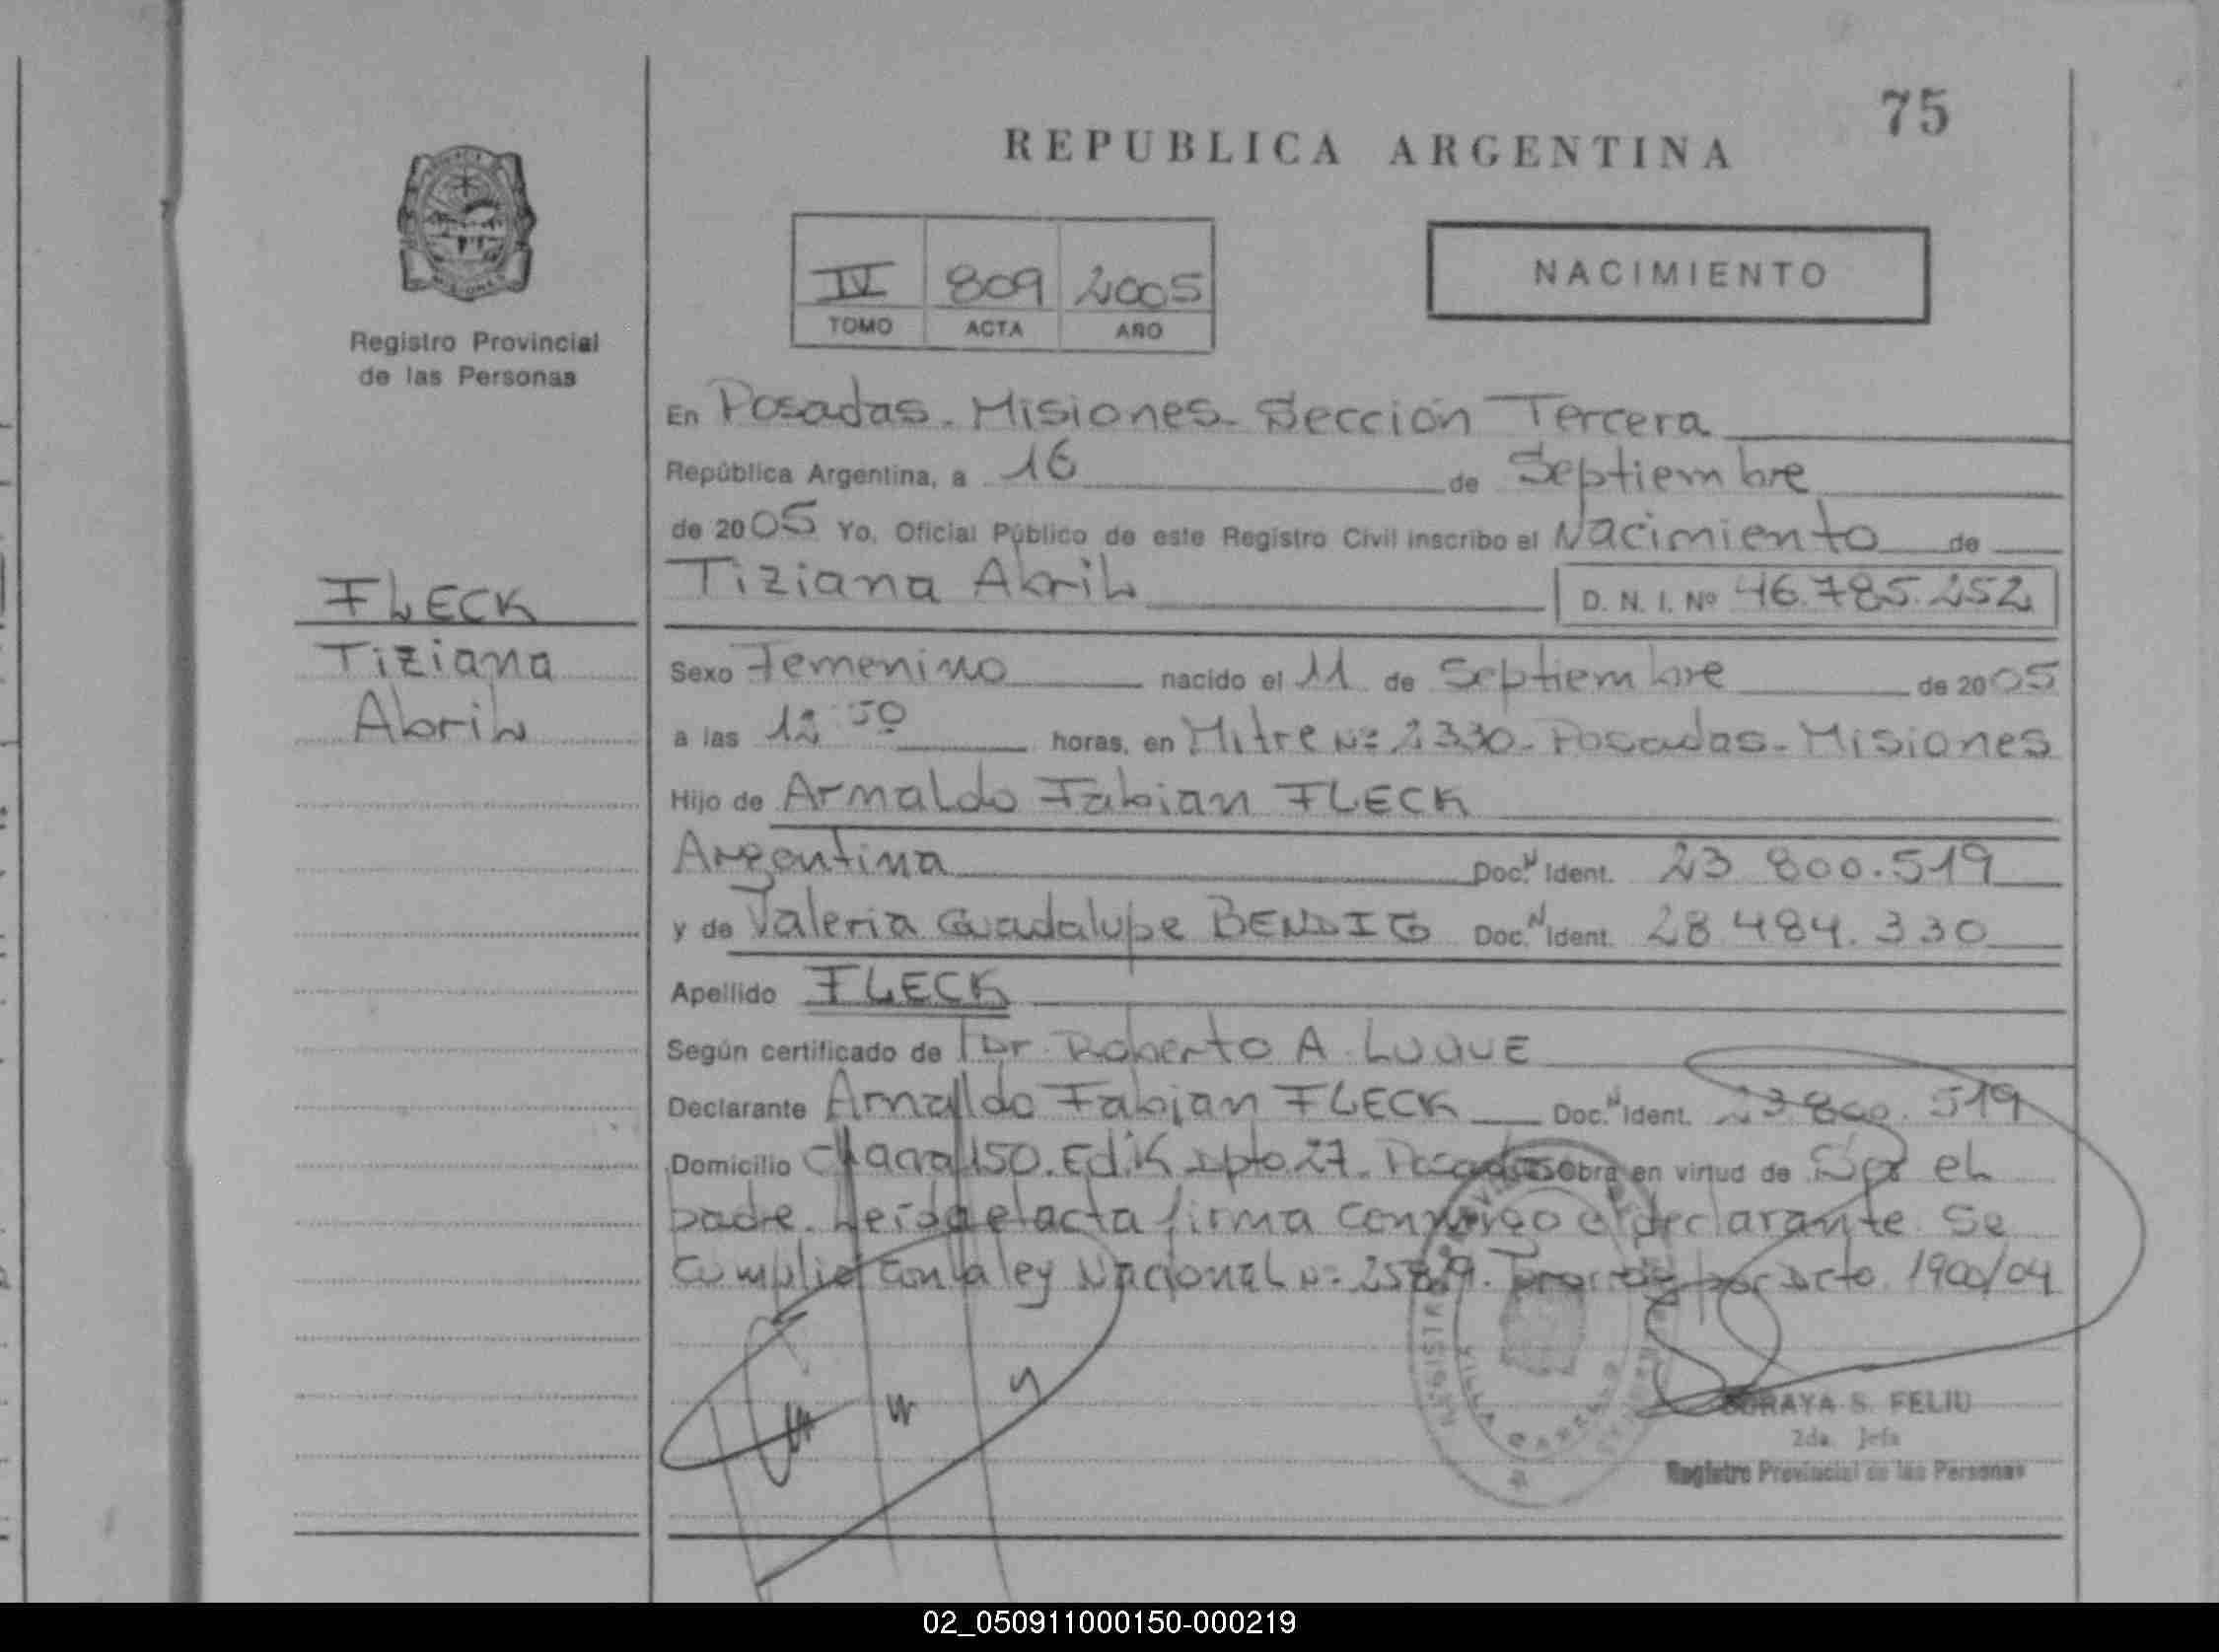 75
REPUBLICA ARGENTINA
IV 809 2005
TOMO ACTA AÑO
NACIMIENTO
Registro Provincial
de las Personas
En Posadas. Misiones. Sección Tercera
República Argentina, a 16 de Septiembre
de 2005 Yo, Oficial Público de este Registro Civil inscribo el Nacimiento de
Tiziana Abril D. N. I. Nº 46.785.252
FLECK
Tiziana
Abril
Sexo Femenino nacido el 11 de Septiembre de 2005
a las 12 50 horas, en Mitre Nº 2330. Posadas. Misiones
Hijo de Arnaldo Fabian FLECK
Argentina Doc. N Ident. 23 800.519
y de Valeria Guadalupe BENDIG Doc. N Ident. 28 484.330
Apellido FLECK
Según certificado de Dr. Roberto A. LUQUE
Declarante Arnaldo Fabian FLECK Doc. N Ident. 23 800.519
Domicilio Chacra 150. Ed. K Dpto 27. Posadas Obra en virtud de Ser el
padre. Leida el acta firma conmigo el declarante. Se
Cumplio con la ley Nacional Nº 25819. por Dcto. 1900/04
SORAYA S. FELIU
2da. Jefa
Registro Provincial de las Personas
02_050911000150-000219